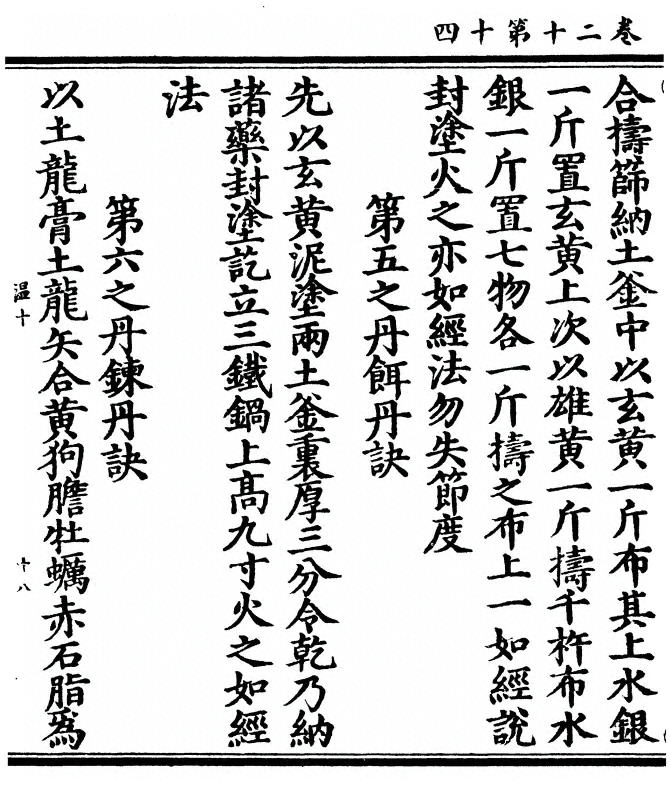 卷二十第十四
合擣篩納土釜中以玄黄一斤布其上水銀
一斤置玄黄上次以雄黄一斤擣千杵布水
銀一斤置七物各一斤擣之布上一如經說
封塗火之亦如經法勿失節度
第五之丹餌丹訣
先以玄黄泥塗兩土釜裏厚三分令乾乃納
諸藥封塗訖立三鐵鍋上髙九寸火之如經
法
第六之丹鍊丹訣
以土龍膏土龍矢合黄狗膽牡蠣赤石脂爲
温十
十八